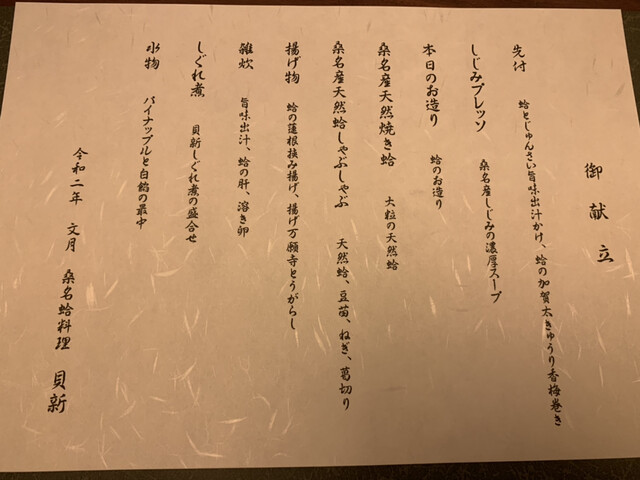 御献立
先付　蛤とじゅんさい旨味出汁かけ、蛤の加賀太きゅうり香梅巻き
しじみプレッソ　桑名産しじみの濃厚スープ
本日のお造り　蛤のお造り
桑名産天然焼き蛤　大粒の天然蛤
桑名産天然蛤しゃぶしゃぶ　天然蛤、豆苗、ねぎ、葛切り
揚げ物　蛤の蓮根挟み揚げ、揚げ万願寺とうがらし
雑炊　旨味出汁、蛤の肝、溶き卵
しぐれ煮　貝新しぐれ煮の盛合せ
水物　パイナップルと白餡の最中
令和二年　文月　桑名蛤料理　貝新